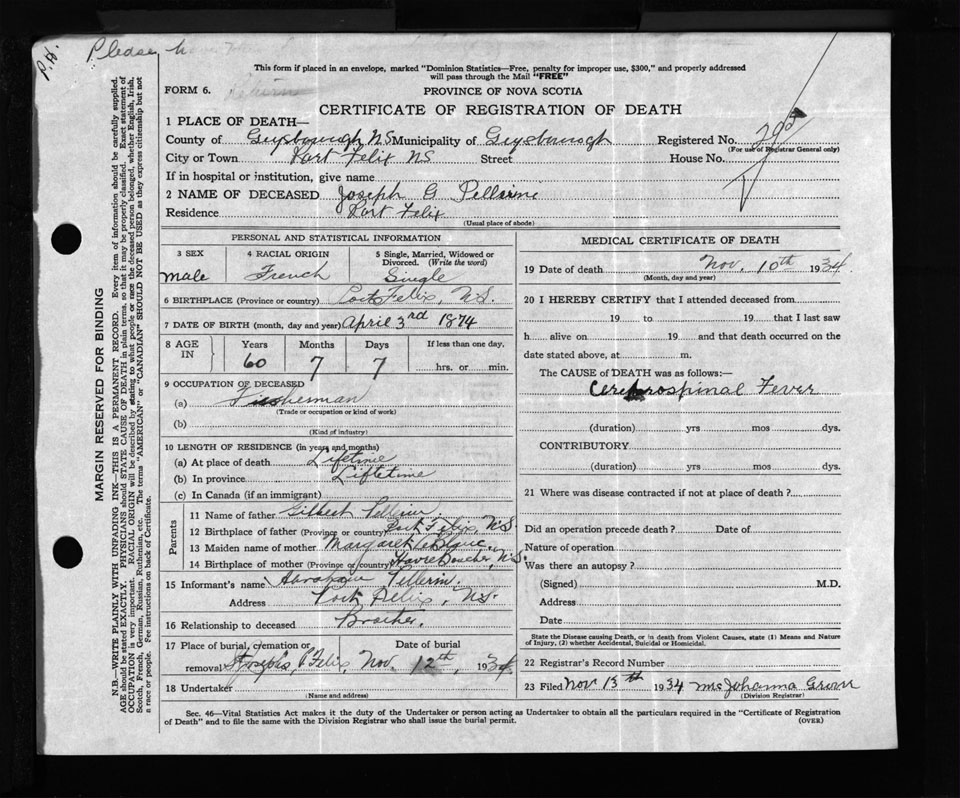 P.H.
Please
This form if placed in an envelope, marked "Dominion Statistics—Free, penalty for improper use, $300," and properly addressed
will pass through the Mail "FREE"
FORM 6. Returns
PROVINCE OF NOVA SCOTIA
CERTIFICATE OF REGISTRATION OF DEATH
1 PLACE OF DEATH—
County of Guysborough NS Municipality of Guysborough Registered No.
(For use of Registrar General only)
City or Town Port Felix NS Street House No.
If in hospital or institution, give name
2 NAME OF DECEASED Joseph G Pellrine
Residence Port Felix
(Usual place of abode)
PERSONAL AND STATISTICAL INFORMATION
3 SEX 4 RACIAL ORIGIN 5 Single, Married, Widowed or Divorced. (Write the word)
male French Single
6 BIRTHPLACE (Province or country) Port Felix, N.S.
7 DATE OF BIRTH (month, day and year) April 3rd 1874
8 AGE IN Years Months Days If less than one day,
60 7 7 hrs. or min.
9 OCCUPATION OF DECEASED
(a) Fisherman
(Trade or occupation or kind of work)
(b)
(Kind of industry)
10 LENGTH OF RESIDENCE (in years and months)
(a) At place of death Lifetime
(b) In province Liftetime
(c) In Canada (if an immigrant)
Parents
11 Name of father Gilbert Pellrin
12 Birthplace of father (Province or country) Port Felix, N.S.
13 Maiden name of mother Margaret LeBlanc
14 Birthplace of mother (Province or country) Havre Boucher, N.S.
15 Informant's name Abraham Pellerin.
Address Port Felix, N.S.
16 Relationship to deceased Brother.
17 Place of burial, Cremation or removal Date of burial
St Josephs, P. Felix, Nov. 12th, 1934
18 Undertaker
(Name and address)
MEDICAL CERTIFICATE OF DEATH
19 Date of death Nov. 10th 1934.
(Month, day and year)
20 I HEREBY CERTIFY that I attended deceased from
19 to 19 that I last saw
h alive on 19 and that death occurred on the
date stated above, at m.
The CAUSE of DEATH was as follows:
Cerebrospinal Fever
(duration) yrs mos dys.
CONTRIBUTORY
(duration) yrs mos dys.
21 Where was disease contracted if not at place of death?
Did an operation precede death? Date of
Nature of operation
Was there an autopsy?
(Signed) M.D.
Address
Date
State the Disease causing Death, or in death from Violent Causes, state (1) Means and Nature
of Injury, (2) whether Accidental, Suicidal or Homicidal.
22 Registrar's Record Number
23 Filed Nov 13th 1934 Mrs Johanna
(Division Registrar)
Sec. 46—Vital Statistics Act makes it the duty of the Undertaker or person acting as Undertaker to obtain all the particulars required in the "Certificate of Registration
of Death" and to file the same with the Division Registrar who shall issue the burial permit. (OVER)
MARGIN RESERVED FOR BINDING
N.B.—WRITE PLAINLY WITH UNFADING INK—THIS IS A PERMANENT RECORD. Every item of information should be carefully supplied.
AGE should be stated EXACTLY. PHYSICIANS should STATE CAUSE OF DEATH in plain terms, so that it may be properly classified. Exact statement of
OCCUPATION is very important. RACIAL ORIGIN will be described by stating to what people or race the deceased person belonged, whether English, Irish,
Scotch, French, German, Russian, Ruthenian, etc. The terms "AMERICAN" or "CANADIAN" SHOULD NOT BE USED as they express citizenship but not
a race or people. See instructions on back of Certificate.